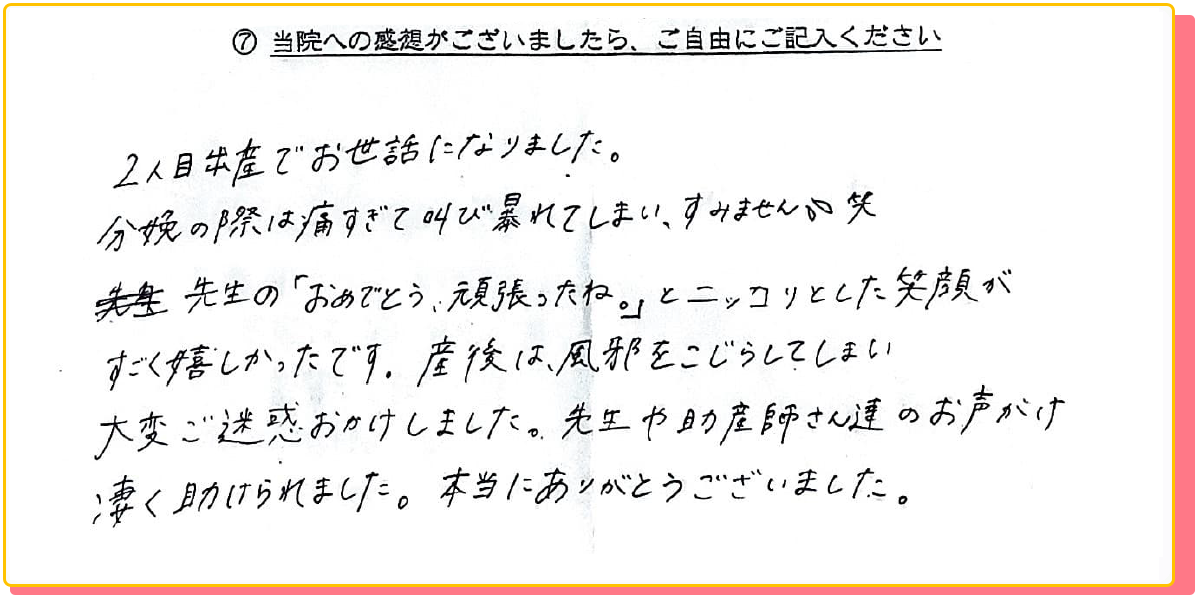 ⑦ 当院への感想がございましたら、ご自由にご記入ください
2人目出産でお世話になりました。
分娩の際は痛すぎて叫び暴れてしまい、すみません 笑
先生の「おめでとう、頑張ったね。」とニッコリとした笑顔が
すごく嬉しかったです。産後は、風邪をこじらしてしまい
大変ご迷惑おかけしました。先生や助産師さん達のお声がけ
凄く助けられました。本当にありがとうございました。